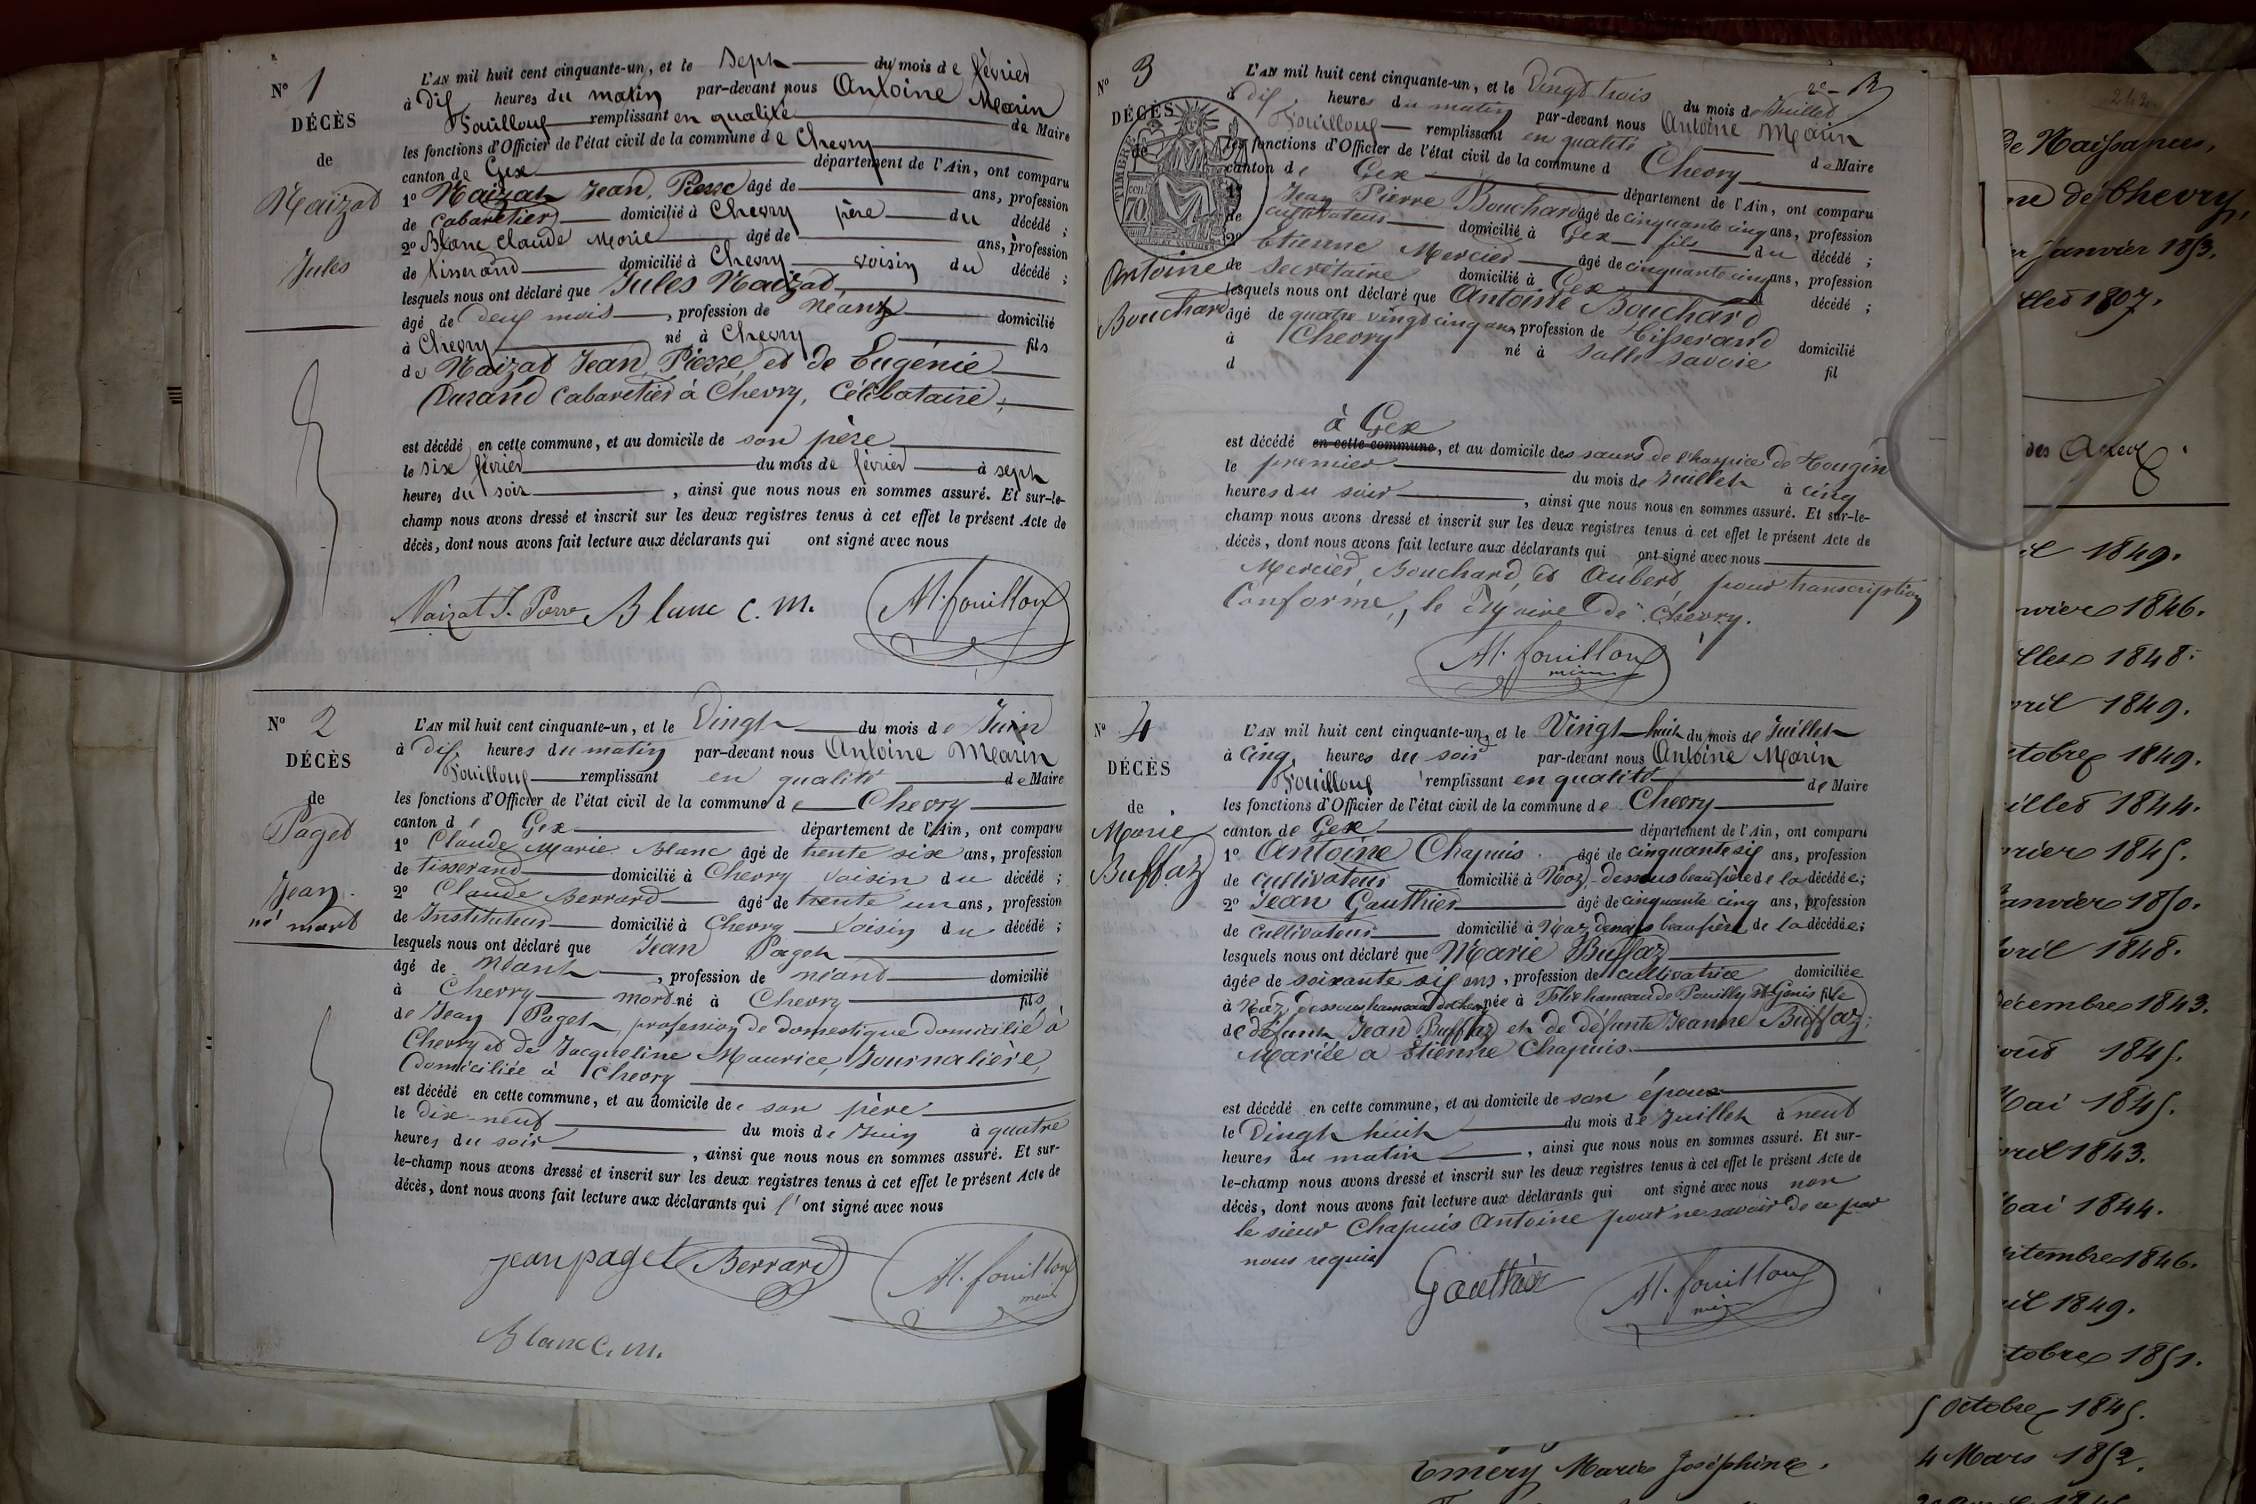 N° 1
DÉCÈS
de
Naizat
Jules
L'AN mil huit cent cinquante-un, et le Sept du mois de février
à dix heures du matin par-devant nous Antoine Marin
Fouilloux remplissant en qualité de Maire
les fonctions d'Officier de l'état civil de la commune de Chevry
canton de Gex département de l'Ain, ont comparu
1° Naizat Jean Pierre âgé de ans, profession
de cabaretier domicilié à Chevry père du décédé ;
2° Blanc Claude Marie âgé de ans, profession
de tisserand domicilié à Chevry voisin du décédé ;
lesquels nous ont déclaré que Jules Naizat
âgé de deux mois, profession de Néant domicilié
à Chevry né à Chevry fils
de Naizat Jean Pierre et de Eugénie
Durand cabaretier à Chevry, Célibataire,
est décédé en cette commune, et au domicile de son père
le six février du mois de février à sept
heures du soir, ainsi que nous nous en sommes assuré. Et sur-le-
champ nous avons dressé et inscrit sur les deux registres tenus à cet effet le présent Acte de
décès, dont nous avons fait lecture aux déclarants qui ont signé avec nous
Naizat J. Pierre Blanc C. M. At. fouilloux
N° 2
DÉCÈS
de
Paget
Jean
né mort
L'AN mil huit cent cinquante-un, et le Vingt du mois de Juin
à dix heures du matin par-devant nous Antoine Marin
Fouilloux remplissant en qualité de Maire
les fonctions d'Officier de l'état civil de la commune de Chevry
canton de Gex département de l'Ain, ont comparu
1° Claude Marie Blanc âgé de trente six ans, profession
de tisserand domicilié à Chevry voisin du décédé ;
2° Claude Berrard âgé de trente un ans, profession
de Instituteur domicilié à Chevry Voisin du décédé ;
lesquels nous ont déclaré que Jean Paget
âgé de Néant, profession de néant domicilié
à Chevry mort né à Chevry fils
de Jean Paget, profession de domestique domicilié à
Chevry et de Jacqueline Maurice, Journalière,
Domiciliée à Chevry
est décédé en cette commune, et au domicile de son père
le dix-neuf du mois de Juin à quatre
heures du soir, ainsi que nous nous en sommes assuré. Et sur-
le-champ nous avons dressé et inscrit sur les deux registres tenus à cet effet le présent Acte de
décès, dont nous avons fait lecture aux déclarants qui l'ont signé avec nous
jean paget Berrard At. fouilloux
Blanc C. M.
N° 3
DÉCÈS
de
TIMBRE
70
Antoine
Bouchard
L'AN mil huit cent cinquante-un, et le Vingt trois du mois de Juillet
à dix heures du matin par-devant nous Antoine Marin
Fouilloux remplissant en qualité de Maire
les fonctions d'Officier de l'état civil de la commune d Chevry
canton de Gex département de l'Ain, ont comparu
1° Jean Pierre Bouchard âgé de cinquante cinq ans, profession
de cultivateur domicilié à Gex fils du décédé ;
2° Etienne Mercier âgé de cinquante cinq ans, profession
de secrétaire domicilié à Gex décédé ;
lesquels nous ont déclaré que Antoine Bouchard
âgé de quatre vingt cinq ans, profession de Tisserand domicilié
à Chevry né à Salle Savoie fil
d
à Gex
est décédé en cette commune, et au domicile des sœurs de l'hospice de Tougin
le premier du mois de Juillet à cinq
heures du soir, ainsi que nous nous en sommes assuré. Et sur-le-
champ nous avons dressé et inscrit sur les deux registres tenus à cet effet le présent Acte de
décès, dont nous avons fait lecture aux déclarants qui ont signé avec nous
Mercier, Bouchard, et Aubert pour transcription
Conforme, le Maire de Chevry.
At. fouilloux
N° 4
DÉCÈS
de
Marie
Buffaz
L'AN mil huit cent cinquante-un, et le Vingt-huit du mois de Juillet
à cinq heures du soir par-devant nous Antoine Marin
Fouilloux remplissant en qualité de Maire
les fonctions d'Officier de l'état civil de la commune de Chevry
canton de Gex département de l'Ain, ont comparu
1° Antoine Chapuis âgé de cinquante six ans, profession
de cultivateur domicilié à Naz-dessous beaufrère de la décédée ;
2° Jean Gauthier âgé de cinquante cinq ans, profession
de cultivateur domicilié à Naz dessus beaufrère de la décédée ;
lesquels nous ont déclaré que Marie Buffaz
âgée de soixante six ans, profession de cultivatrice domiciliée
à Naz dessous hameau de Chevry née à hameau de Pouilly St Genis fille
de défunt Jean Buffaz et de défunte Jeanne Buffaz ;
Mariée a Etienne Chapuis
est décédé en cette commune, et au domicile de son époux
le Vingt huit du mois de Juillet à neuf
heures du matin, ainsi que nous nous en sommes assuré. Et sur-
le-champ nous avons dressé et inscrit sur les deux registres tenus à cet effet le présent Acte de
décès, dont nous avons fait lecture aux déclarants qui ont signé avec nous non
le sieur Chapuis Antoine pour ne savoir de ce par
nous requis
Gauthier At. fouilloux
de Naissances,
de Chevry,
Janvier 1853.
1807.
des Aveux
1849.
1846.
1848.
1849.
1849.
1844.
1845.
Janvier 1850.
1848.
Décembre 1843.
1845.
Mai 1845.
1843.
Mai 1844.
1846.
1849.
1851.
5 Octobre 1845.
Emery Marie Joséphine. 4 Mars 1852.